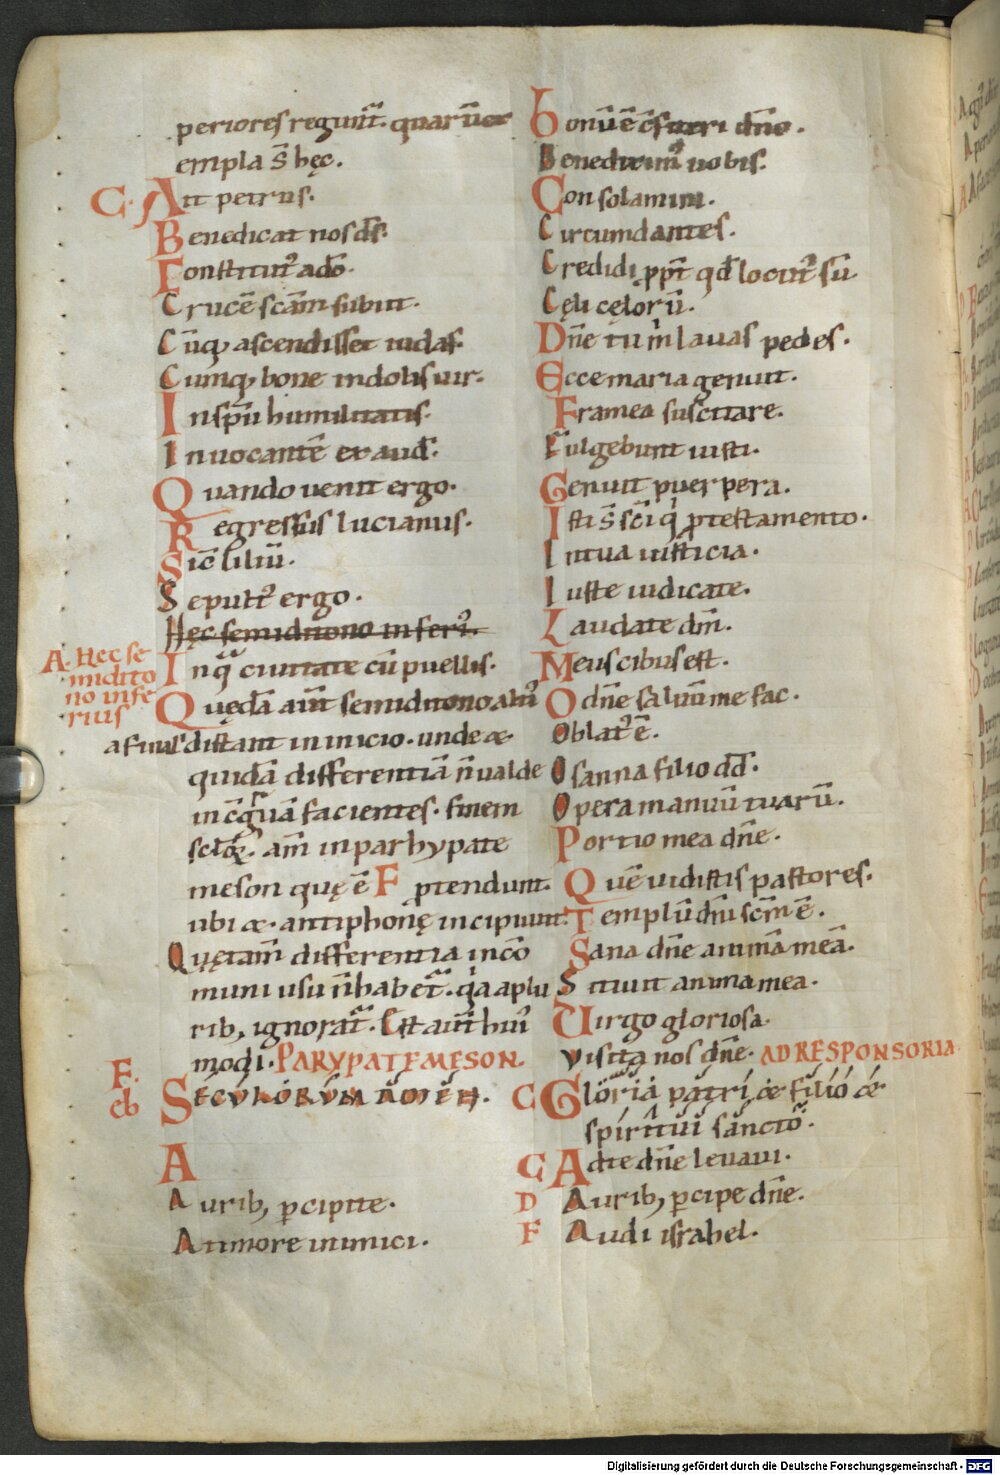 periores regunt̄. quarū ex
empla s̄ hęc.
C. At petrus.
Benedicat nos ds̄.
Constitut᷒ ad ō.
Crucē scām subiit.
Cūq; ascendisset iudas.
Cumq; bone indolis uir.
In spū humilitatis.
Inuocantē exaud.
Quando uenit ergo.
Regressus lucianus.
Sic̄ liliū.
Sepult᷒ ergo.
Hęc semiditono inferi᷒.
A. Hec se
midito
no infe
rius
In q̄ ciuitate cū puellis.
Quędā aūt semiditono abi᷒
a finali distant in inicio. unde &
quidā differentiā n̄ ualde
facientes. finem
sclōꝝ. am̄ in parhypate
meson quę ē F ptendunt.
ubi & antiphonę incipiunt.
Quę tam̄ differentia in cō
muni usu n̄ habet̄. q̇a a plu
rib; ignorat̄. Est aūt hui᷒
modi. PARYPATE MESON.
F.
eb
SECULORUM AMEN.
A
Aurib; ꝑcipite.
A timore inimici.
Bonū ē c̄fiteri dn̄o.
Benediximus uobis.
Consolamini.
Circumdantes.
Credidi ꝓpt̄ qd̄ locut᷒ sū.
Cęli cęlorū.
Dn̄e tu m̍ lauas pedes.
Ecce maria genuit.
Framea suscitare.
Fulgebunt iusti.
Genuit puerpera.
Isti s̄ sc̄i q̍ ꝓ testamento.
In tua iusticia.
Iuste iudicate.
Laudate dm̄.
Meus cibus est.
O dn̄e saluū me fac.
Oblat᷒ ē.
Osanna filio dd̄.
Opera manuū tuarū.
Portio mea dn̄e.
Quē uidistis pastores.
Templū dn̄i scm̄ ē.
Sana dn̄e animā meā.
Sitiuit anima mea.
Virgo gloriosa.
Visita nos dn̄e. AD RESPONSORIA
C Gloria patri & filio &
spiritui sancto.
C Ad te dn̄e leuaui.
D Aurib; ꝑcipe dn̄e.
F Audi israhel.
Digitalisierung gefördert durch die Deutsche Forschungsgemeinschaft - DFG